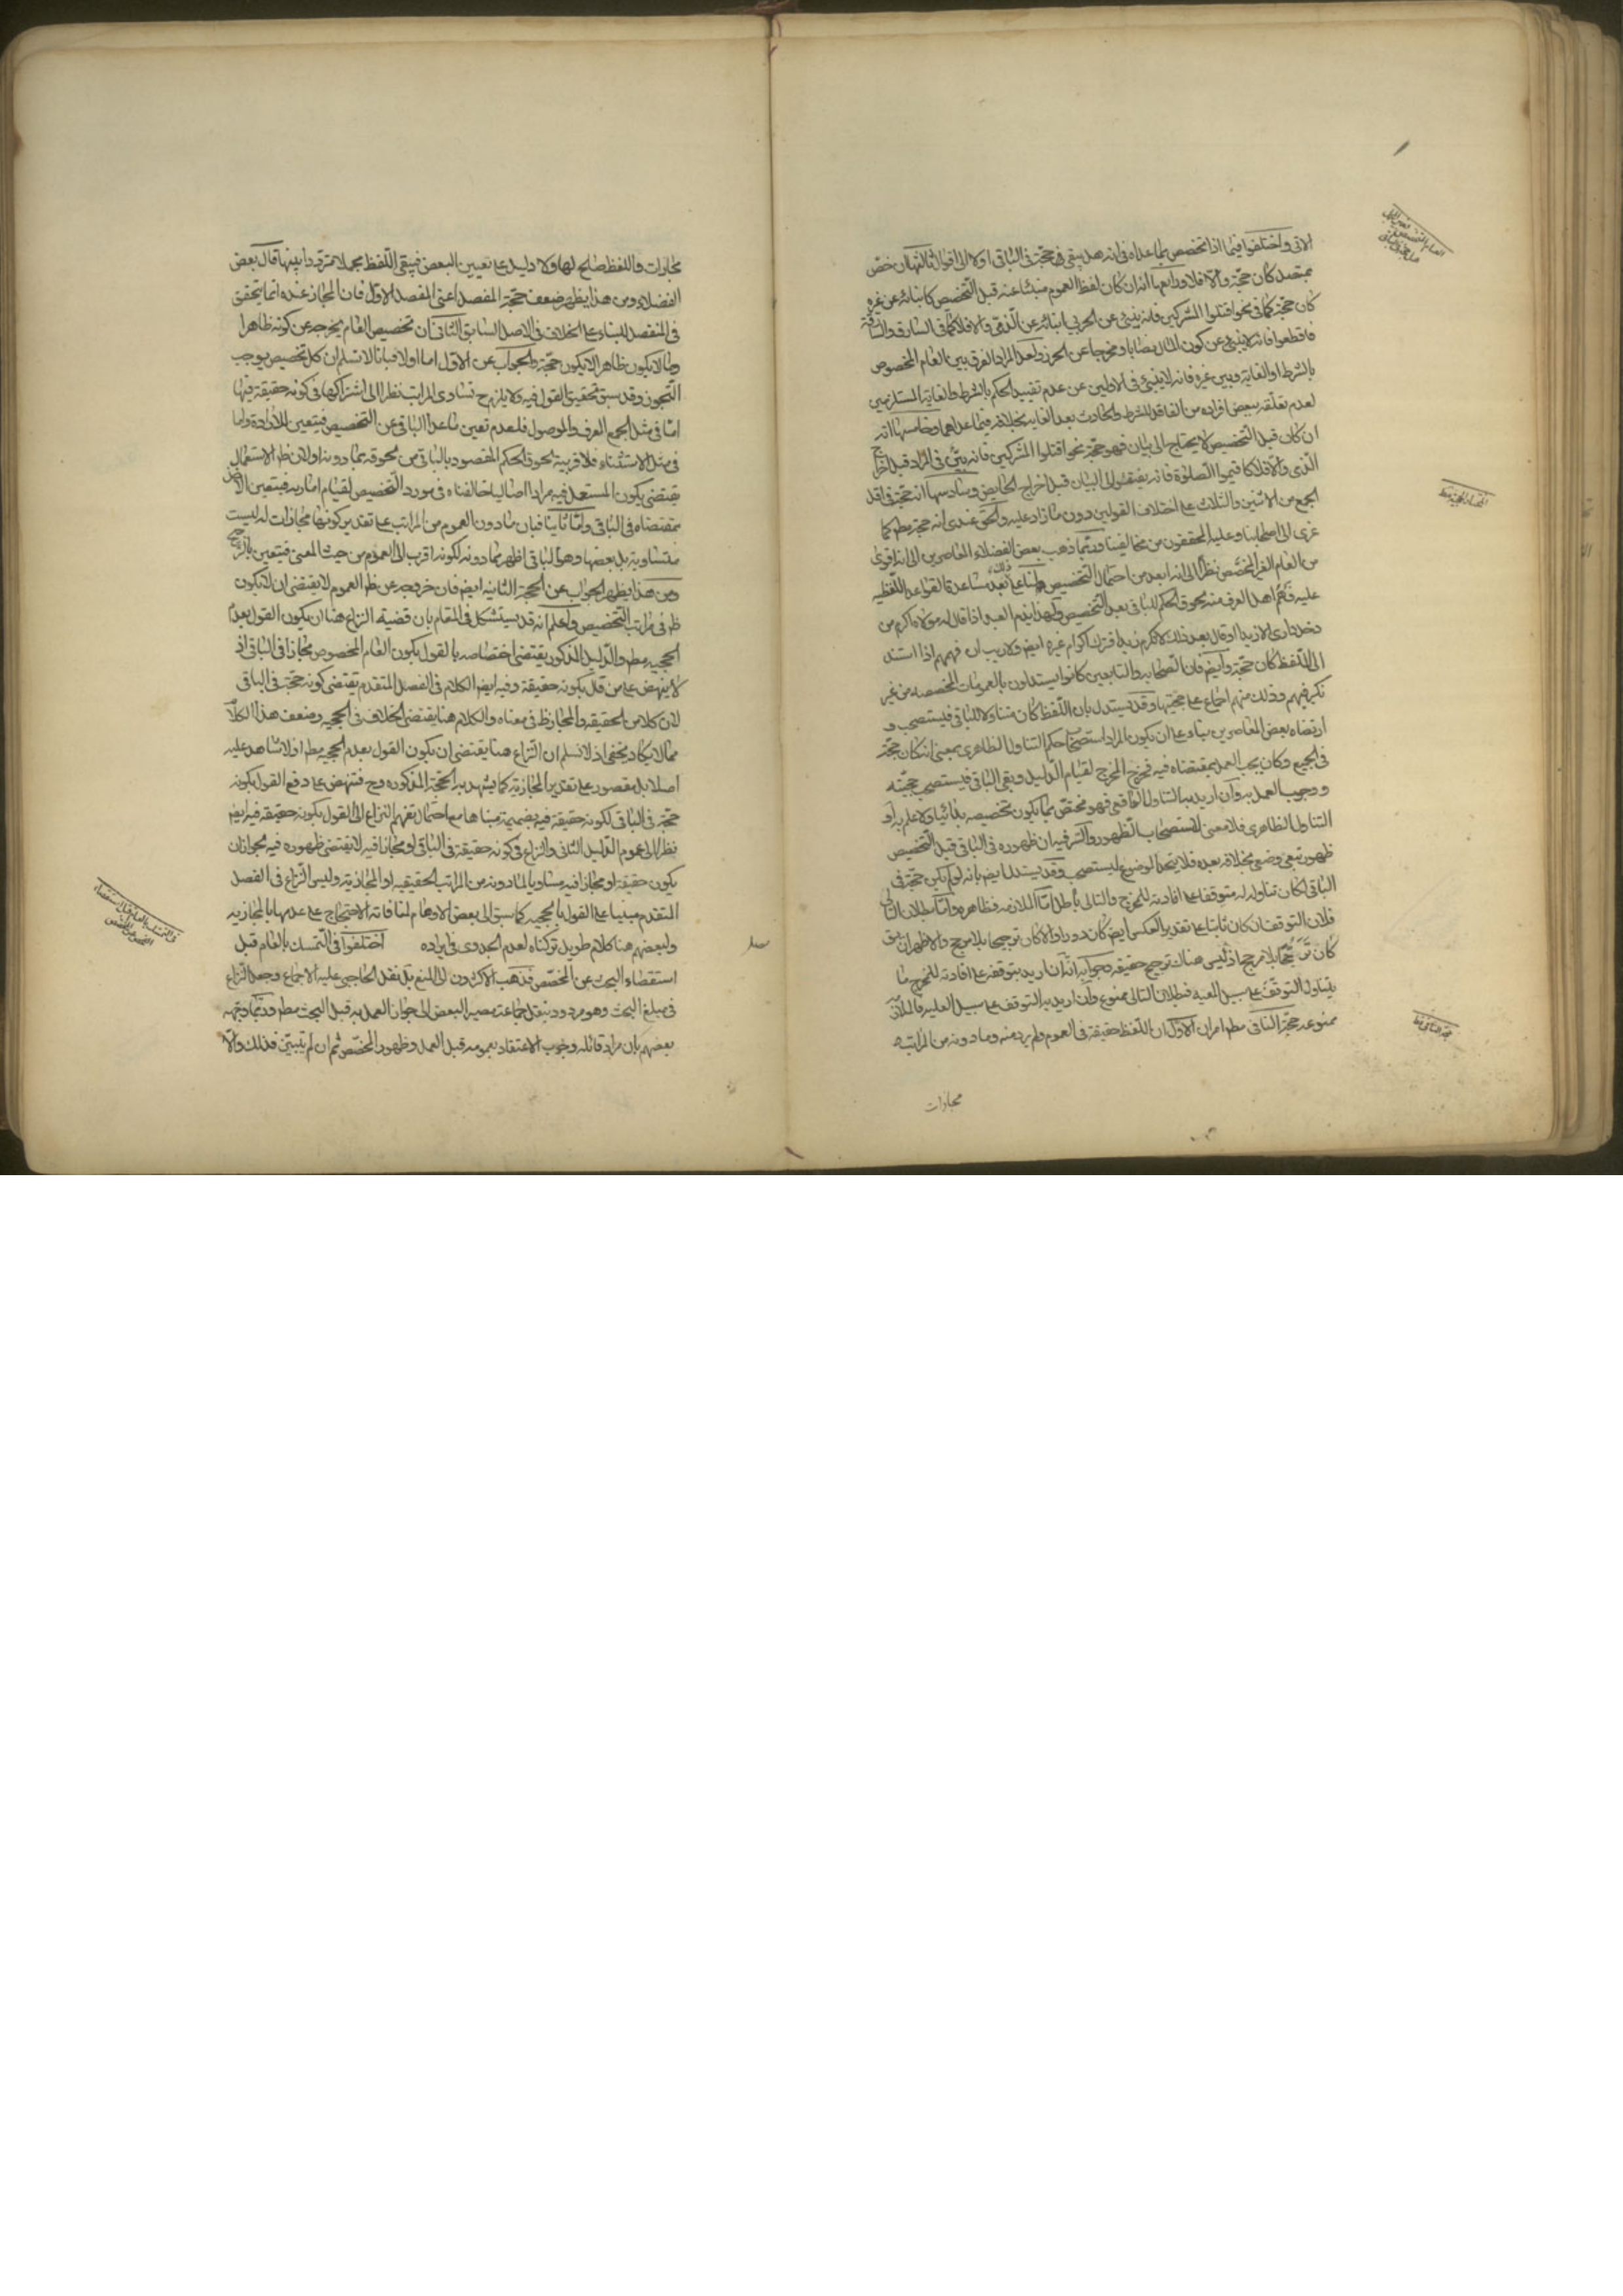 الاتى واختلفوا فيما اذا تخصص بما عداه فى انه هل يبقى حجّة فى الباقى او لا الى اقوال ثالثها ان خصّ
بمتصل كان حجّة والا فلا ورابعها انه ان كان لفظ العموم منبئا عنه قبل التخصيص كانبائه عن غيره
كان حجّة كما فى نحو اقتلوا المشركين فانه ينبئ عن الحربى انبائه عن الذمّى والا فلا كما فى السارق والسارقة
فاقطعوا فانه لا ينبئ عن كون المال نصابا ومخرجا عن الحرز ولعل المراد الفرق بين العام المخصوص
بالشرط او الغاية وبين غيره فانه لا ينبئ فى الاولين عن عدم تقييد الحكم بالشرط والغاية المستلزمين
لعدم تعلقه ببعض افراده من الفاقد للشرط والحادث بعد الغاية بخلافه فيما عداهما وخامسها انه
ان كان قبل التخصيص لا يحتاج الى بيان فهو حجّة نحو اقتلوا المشركين فانه بيّن فى المراد قبل اخراج
الذمى والا فلا كاقيموا الصلوة فانه يفتقر الى البيان قبل اخراج الحايض وسادسها انه حجّة فى اقل
الجمع من الاثنين والثلاث على اختلاف القولين دون ما زاد عليه والحق عندى انه حجّة مطم كما
عزى الى اصحابنا وعليه المحققون من مخالفينا وربّما ذهب بعض الفضلاء المعاصرين الى انه اقوى
من العام الغير المخصّص نظرا الى انه ابعد من احتمال التخصيص ولنا على ذلك بعد مساعدة القواعد اللفظيه
عليه فهم اهل العرف منه لحوق الحكم للباقى بعد التخصيص ولهذا يذم العبد اذا قال له مولاه اكرم من
دخل دارى الا زيدا او قال بعد ذلك لا تكرم زيدا فترك اكرام غيره ايض ولا ريب ان فهمهم اذا استند
الى اللفظ كان حجّة وايض فان الصّحابه والتابعين كانوا يستدلون بالعمومات المخصصه من غير
نكير فيهم وذلك منهم اجماع على حجيتها وقد يستدل بان اللفظ كان متناولا للباقى فليستصحب و
ارتضاه بعض المعاصرين بناء على ان يكون المراد استصحاب حكم التناول الظاهرى بمعنى انه كان حجّة
فى الجميع وكان يجب العمل بمقتضاه فيه فخرج المخرج لقيام الدليل وبقى الباقى فيستصحب حجيّته
و وجوب العمل به وان اريد به التناول الواقعى فهو مختص بما يكون تخصيصه بدائيا ولا علم به او
التناول الظاهرى فلا معنى لاستصحاب الظهور والسّر فيه ان ظهوره فى الباقى قبل التخصيص
ظهور تبعى وضعى بخلافه بعده فلا يتحد الموضوع ليستصحب وقد يستدل ايض بانه لو لم يكن حجّة فى
الباقى لكان تناوله له متوقفا على افادته للمخرج والتالى باطل امّا الملازمه فظاهره وامّا بطلان التالى
فلان التوقف ان كان ثابتا على تقدير العكس ايض كان دورا والا كان ترجيحا بلا مرجح والاظهر ان يق
كان ترجيحا بلا مرجح اذ ليس هناك ترجيح حقيقه وجوابه انه ان اريد بتوقفه على افادته للمخرج ما
يتناول التوقف على سبيل المعيه فبطلان التالى ممنوع وان اريد به التوقف على سبيل العليه فالملازمه
ممنوعه حجّة النافى مطم امران الاوّل ان اللفظ حقيقة فى العموم ولم يرد منه وما دونه من المراتب
مجازات
مجازات واللفظ صالح لها ولا دليل على تعيين البعض فيبقى اللفظ مجملا مترددا بينها قال بعض
الفضلاء ومن هذا يظهر ضعف حجّة المفصل اعنى المفصل الاوّل فان المجاز عنده انما يتحقق
فى المنفصل للبناء على الخلاف فى الاصل السّابق الثانى ان تخصيص العام يخرجه عن كونه ظاهرا
وما لا يكون ظاهرا لا يكون حجّة والجواب عن الاوّل اما اولا فبانا لا نسلم ان كل تخصيص يوجب
التجوز وقد سبق تحقيق القول فيه ولا يلزم ح تساوى المراتب نظرا الى اشتراكها فى كونه حقيقة فيها
امّا فى مثل الجمع المعرف والموصول فلعدم تعين ما عدا الباقى عن التخصيص فيتعين للارادة واما
فى مثل الاستثناء فلا قربية لحوق الحكم المقصود بالباقى من لحوقه بما دونه او لان ظم الاستعمال
يقتضى كون المستعمل فيه مرادا اصاليا خالفناه فى مورد التخصيص لقيام امارته فيتعين الاخذ
بمقتضاه فى الباقى وامّا ثانيا فبان ما دون العموم من المراتب على تقدير كونها مجازات له ليست
متساويه بل بعضها وهو الباقى اظهر مما دونه لكونه اقرب الى العموم من حيث المعنى فيتعين بالترجيح
ومن هذا يظهر الجواب عن الحجة الثانيه ايض فان خروجه عن ظم العموم لا يقتضى ان لا يكون
ظم فى مراتب التخصيص واعلم انه قد يستشكل فى المقام بان قضية النزاع هنا ان يكون القول بعدم
الحجيه مطم والدليل المذكور يقتضى اختصاصه بالقول بكون العام المخصوص مجازا فى الباقى اذ
لا ينهض على من قال بكونه حقيقة وفيه ايض الكلام فى الفصل المتقدم يقتضى كونه حجّة فى الباقى
لان كلا من الحقيقه والمجاز ظم فى معناه والكلام هنا يقتضى الخلاف فى الحجيه وضعف هذا الكلام
مما لا يكاد يخفى اذ لا نسلم ان النزاع هنا يقتضى ان يكون القول بعدم الحجيه مطم اذ لا شاهد عليه
اصلا بل مقصور على تقدير المجازيّه كما يشهد به الحجّة المذكوره وح فتنهض على دفع القول بكونه
حجّة فى الباقى لكونه حقيقة فيه بضميمة مبناها مع احتمال تفهيم النزاع الى القول بكونه حقيقة فيه ايض
نظرا الى عموم الدليل الثانى والنزاع فى كونه حقيقة فى الباقى او مجازا فيه لا يقتضى ظهوره فيه لجواز ان
يكون حقيقة او مجازا فيه مساويا لما دونه من المراتب الحقيقيه او المجازيّه وليس النزاع فى الفصل
المتقدم مبنيا على القول بالحجيه كما سبق الى بعض الاوهام لمنافاته الاحتجاج على عدمها بالمجازيه
ولبعضهم هنا كلام طويل تركناه لعدم الجدوى فى ايراده اختلفوا فى التمسك بالعام قبل
استقصاء البحث عن المخصّص فذهب الاكثرون الى المنع بل نقل الحاجبى عليه الاجماع وجعل النزاع
فى مبلغ البحث وهو مردود بنقل جماعة مصير البعض الى جواز العمل به قبل البحث مطم وربّما وجّهه
بعضهم بان مراد قائله وجوب الاعتقاد بعمومه قبل العمل وظهور المخصّص ثم ان لم يتبيّن فذلك والا